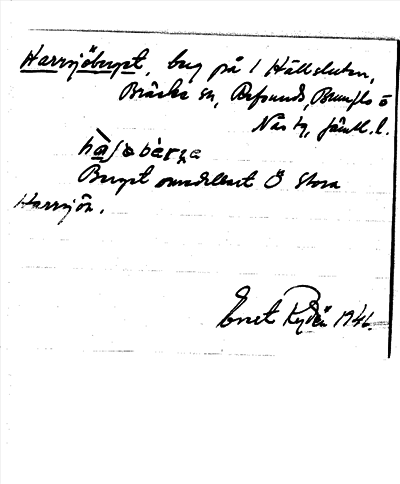 Harrsjöberget, berg på 1 Hällsluten,
Bräcke sn, Refsunds, Brunflo o
Näs tg, Jämtl. l.
hàʃobærga
Berget omedelbart Ö Stora
Harrsjön.
Ernet Rydén 1946.